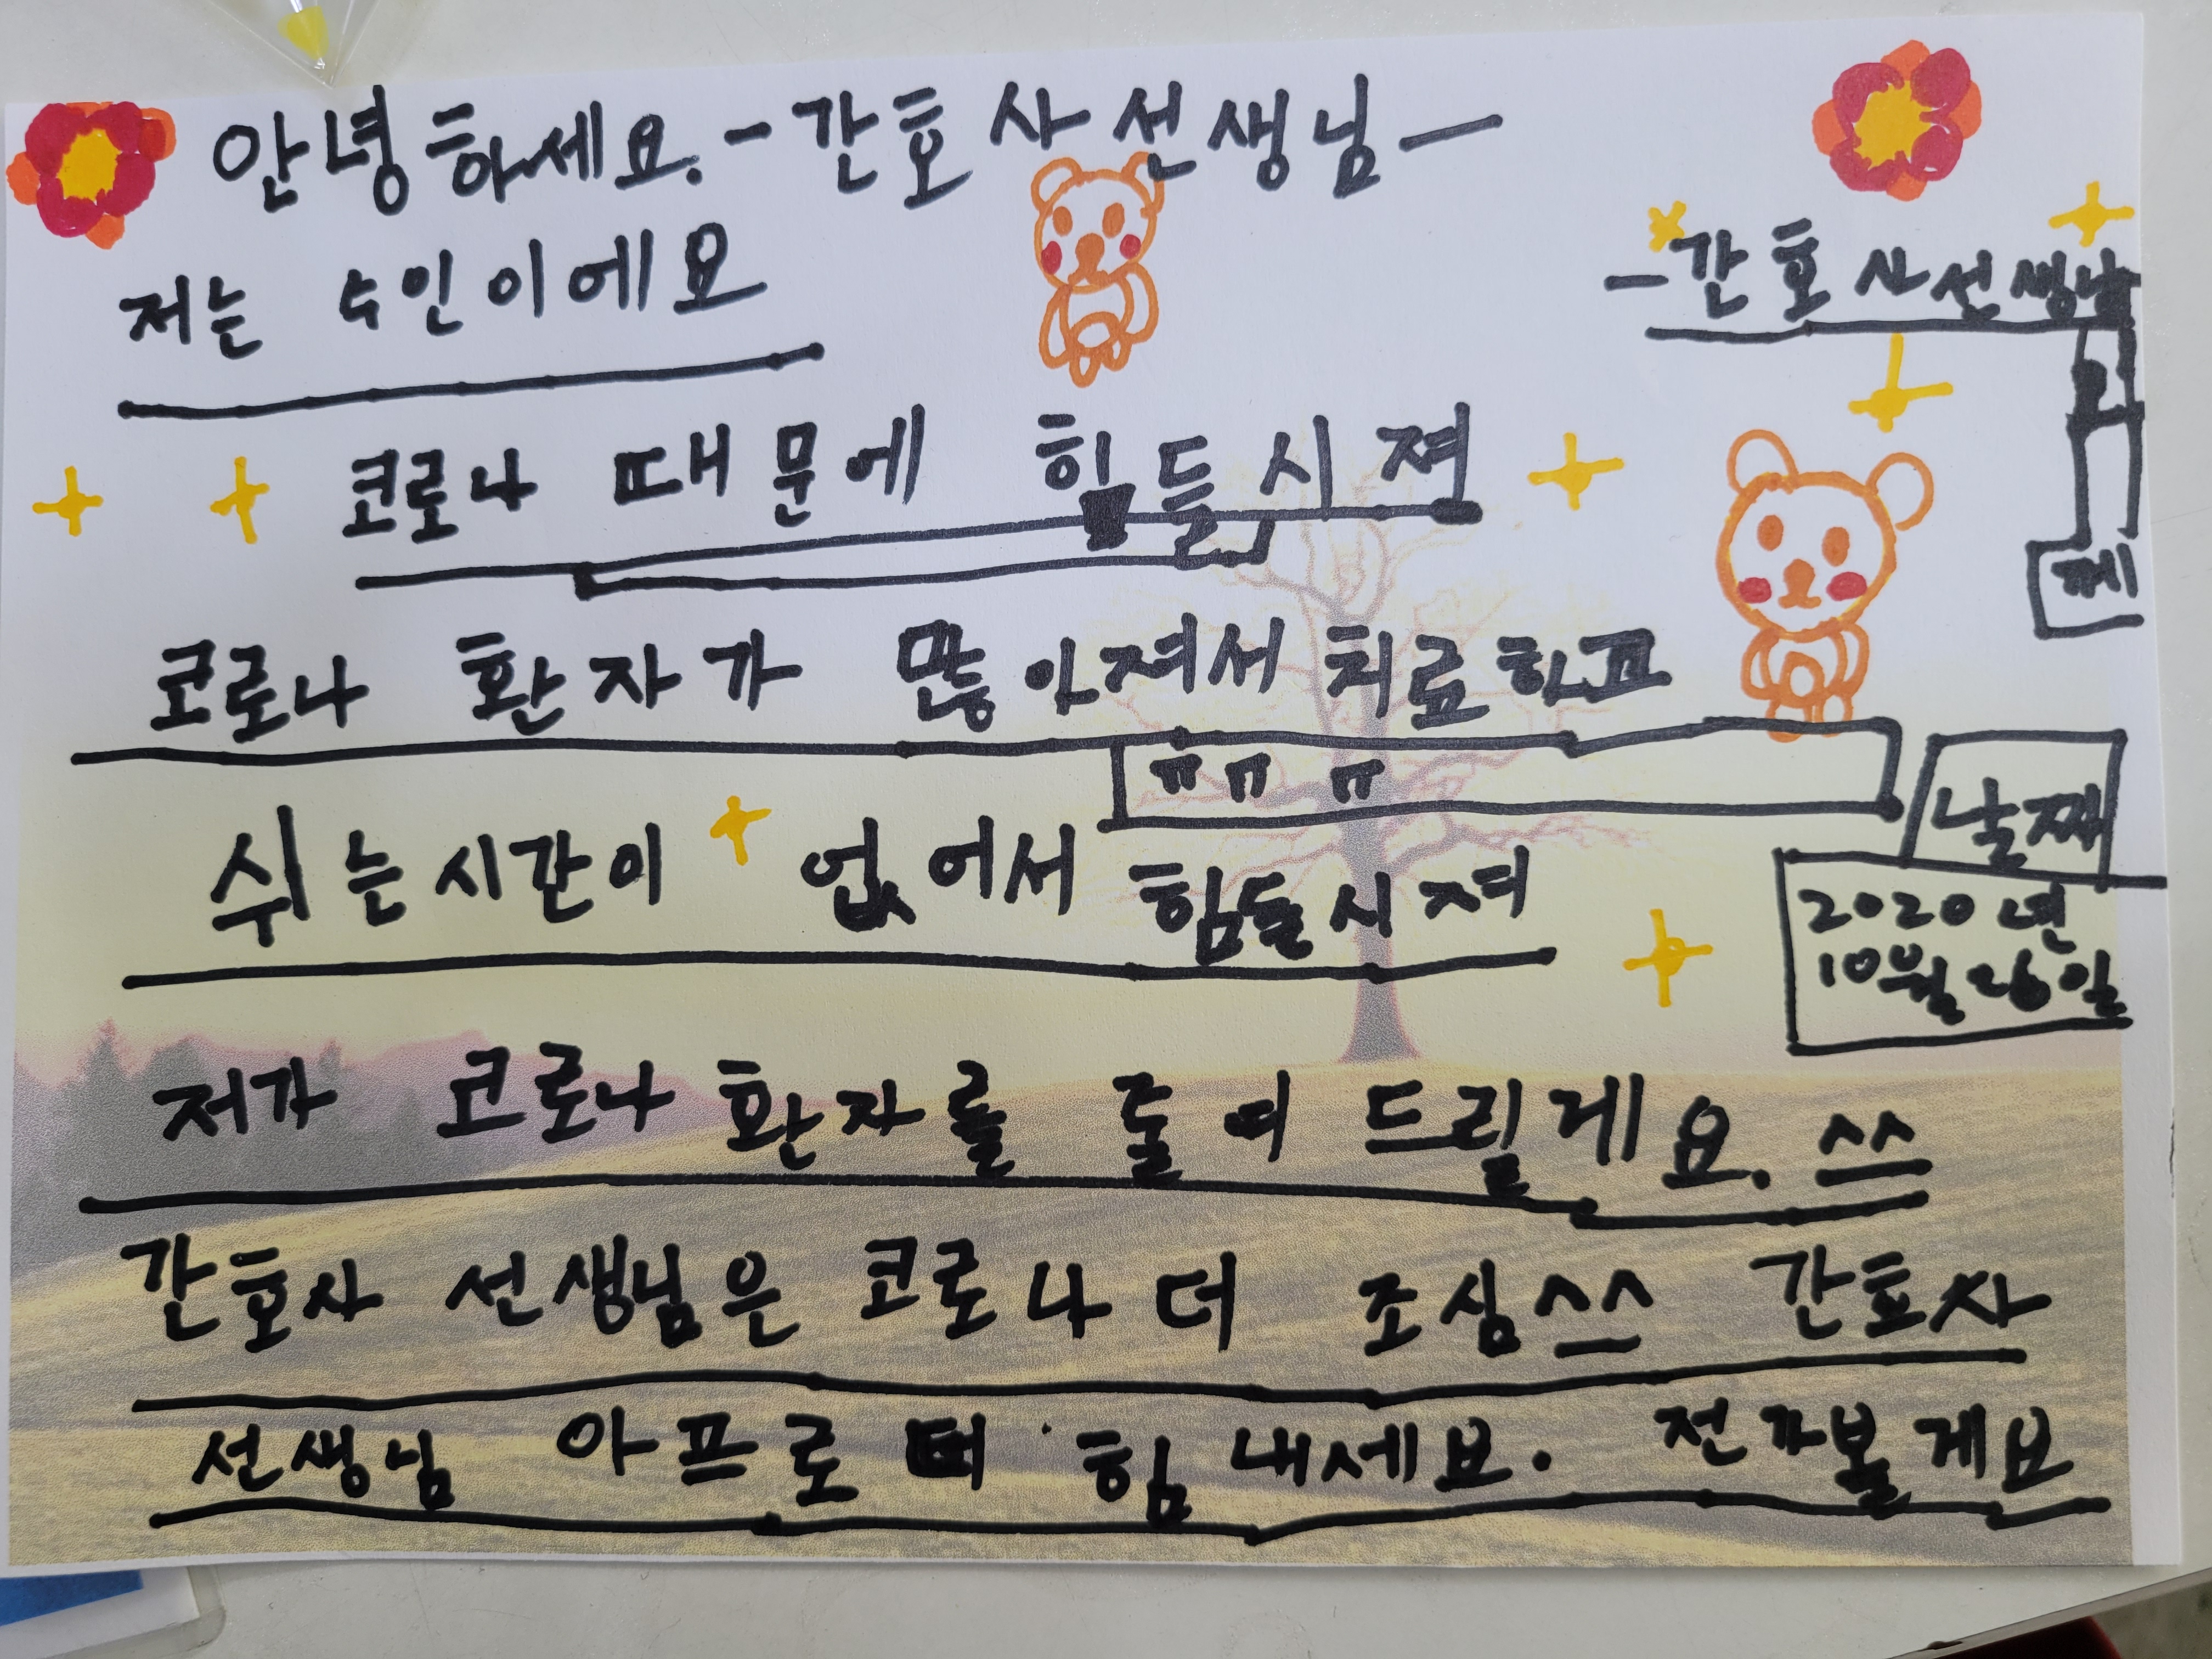 안녕하세요. -간호사선생님-
저는 수인이에요
-간호사선생님
께
코로나 때문에 힘들시져
코로나 환자가 많아져서 치료하고
ㅠㅠ ㅠ
쉬는시간이 없어서 힘들시져
날짜
2020년
10월 26일
저가 코로나 환자를 줄여 드릴게요. ^^
간호사 선생님은 코로나 더 조심^^ 간호사
선생님 아프로 더 힘 내세요. 전 가볼게요